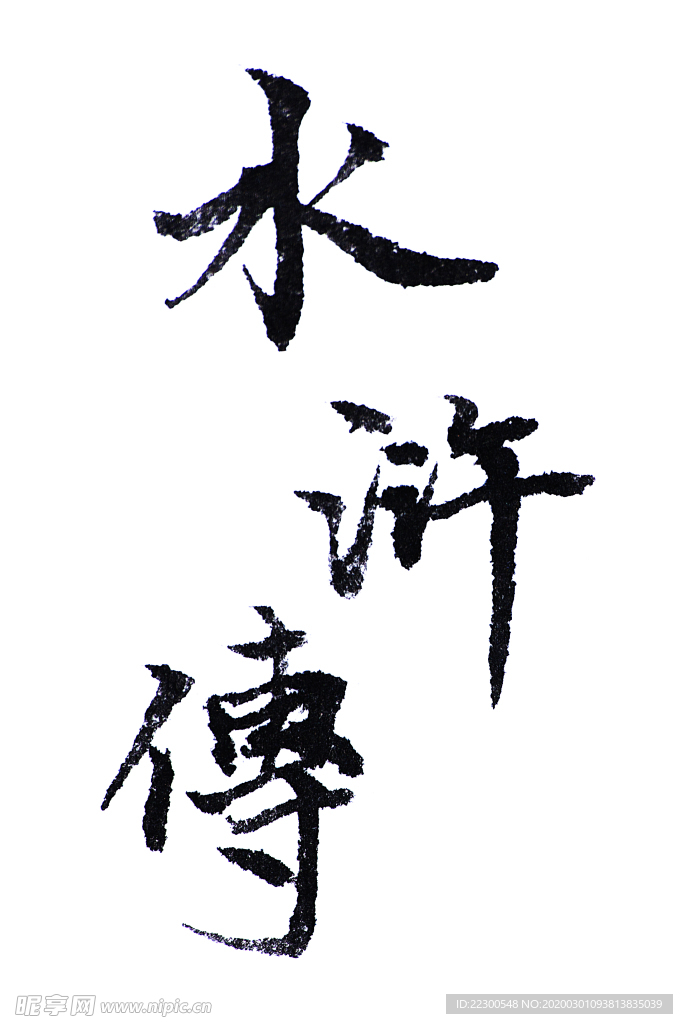 水
浒
傳
昵享网 www.nipic.cn
ID:22300548 NO:20200301093813835039